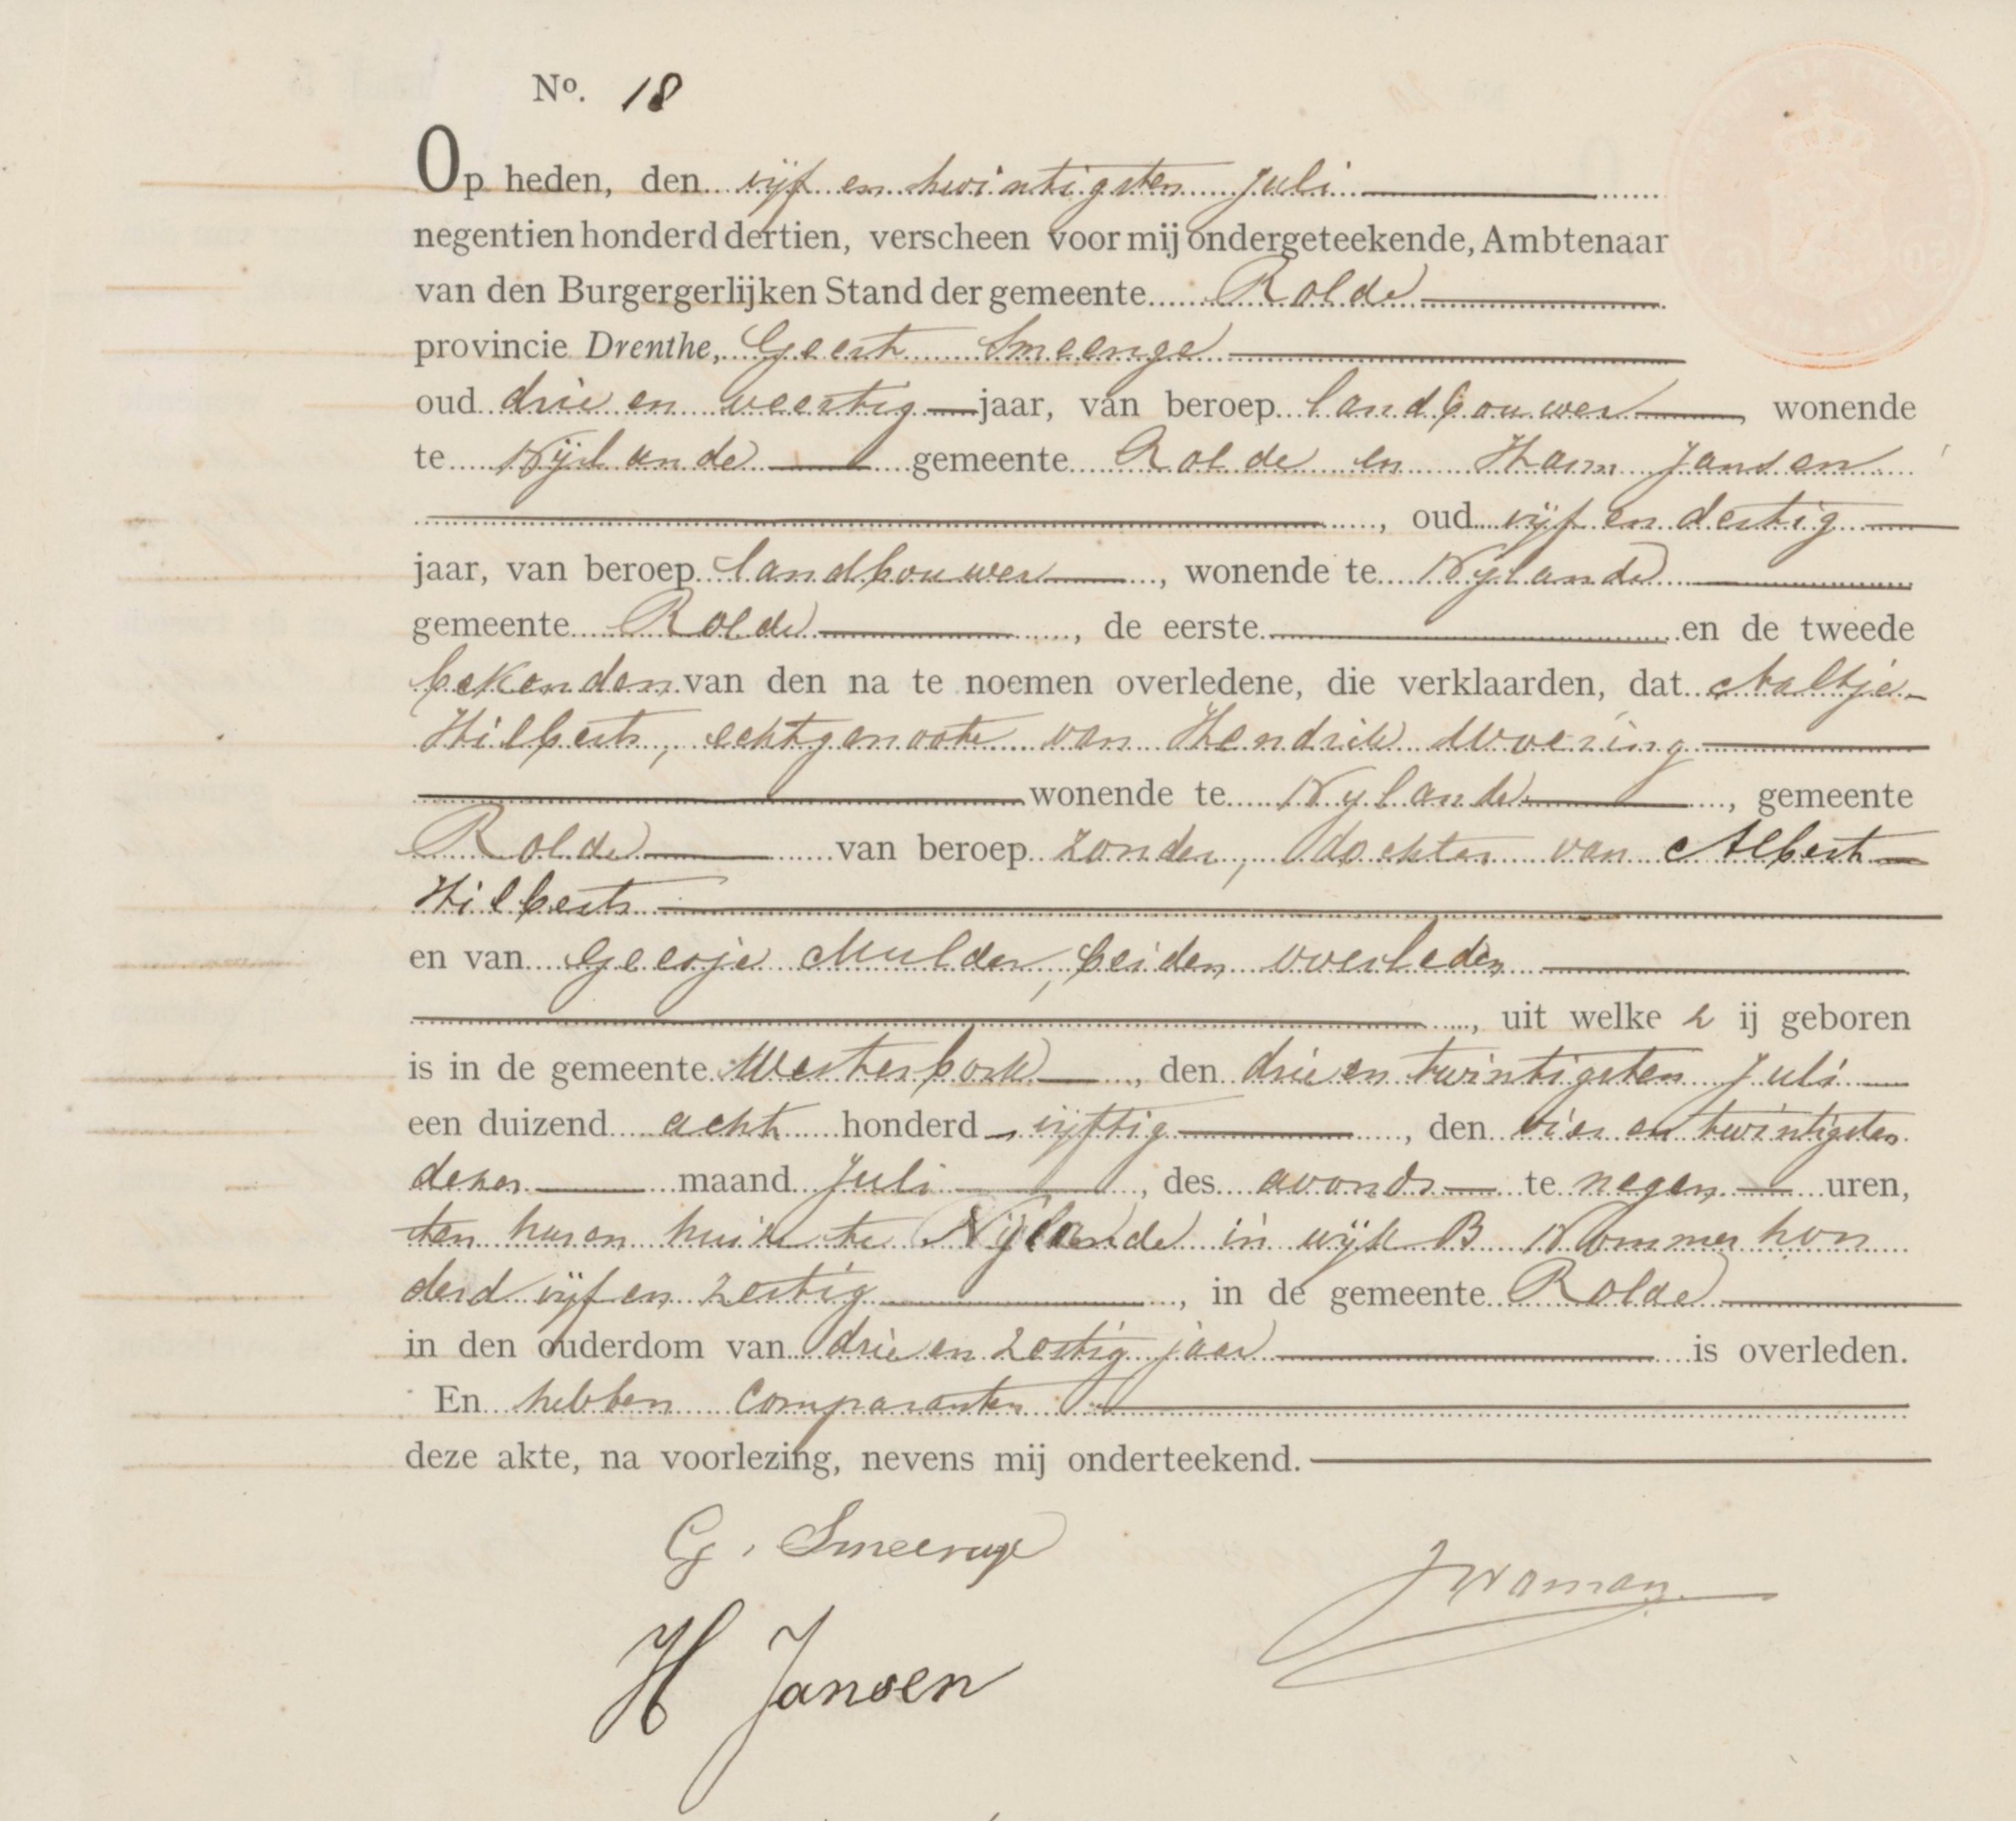 No. 18
Op heden, den vijf en twintigsten Juli
negentienhonderd dertien, verscheen voor mij ondergeteekende, Ambtenaar
van den Burgergerlijken Stand der gemeente Rolde
provincie Drenthe, Geert Smeenge
oud drie en veertig jaar, van beroep landbouwer wonende
te Nijlande gemeente Rolde en Harm Jansen
, oud vijf en dertig
jaar, van beroep landbouwer, wonende te Nylande
gemeente Rolde, de eerste en de tweede
bekenden van den na te noemen overledene, die verklaarden, dat Aaltje
Hilberts, echtgenoote van Hendrik Woering
wonende te Nylande, gemeente
Rolde van beroep zonder, dochter van Albert
Hilberts
en van Geesje Mulder, beiden overleden
, uit welke z ij geboren
is in de gemeente Westerbork, den drie en twintigsten Juli
een duizend acht honderd vijftig, den vier en twintigsten
dezer maand Juli, des avonds te negen uren,
ten huren huize te Nijlande in wijk B Nommer hon
derd vijf en zestig, in de gemeente Rolde
in den ouderdom van drie en zestig jaar is overleden.
En hebben Comparanten
deze akte, na voorlezing, nevens mij onderteekend.
G. Smeenge
H Jansen